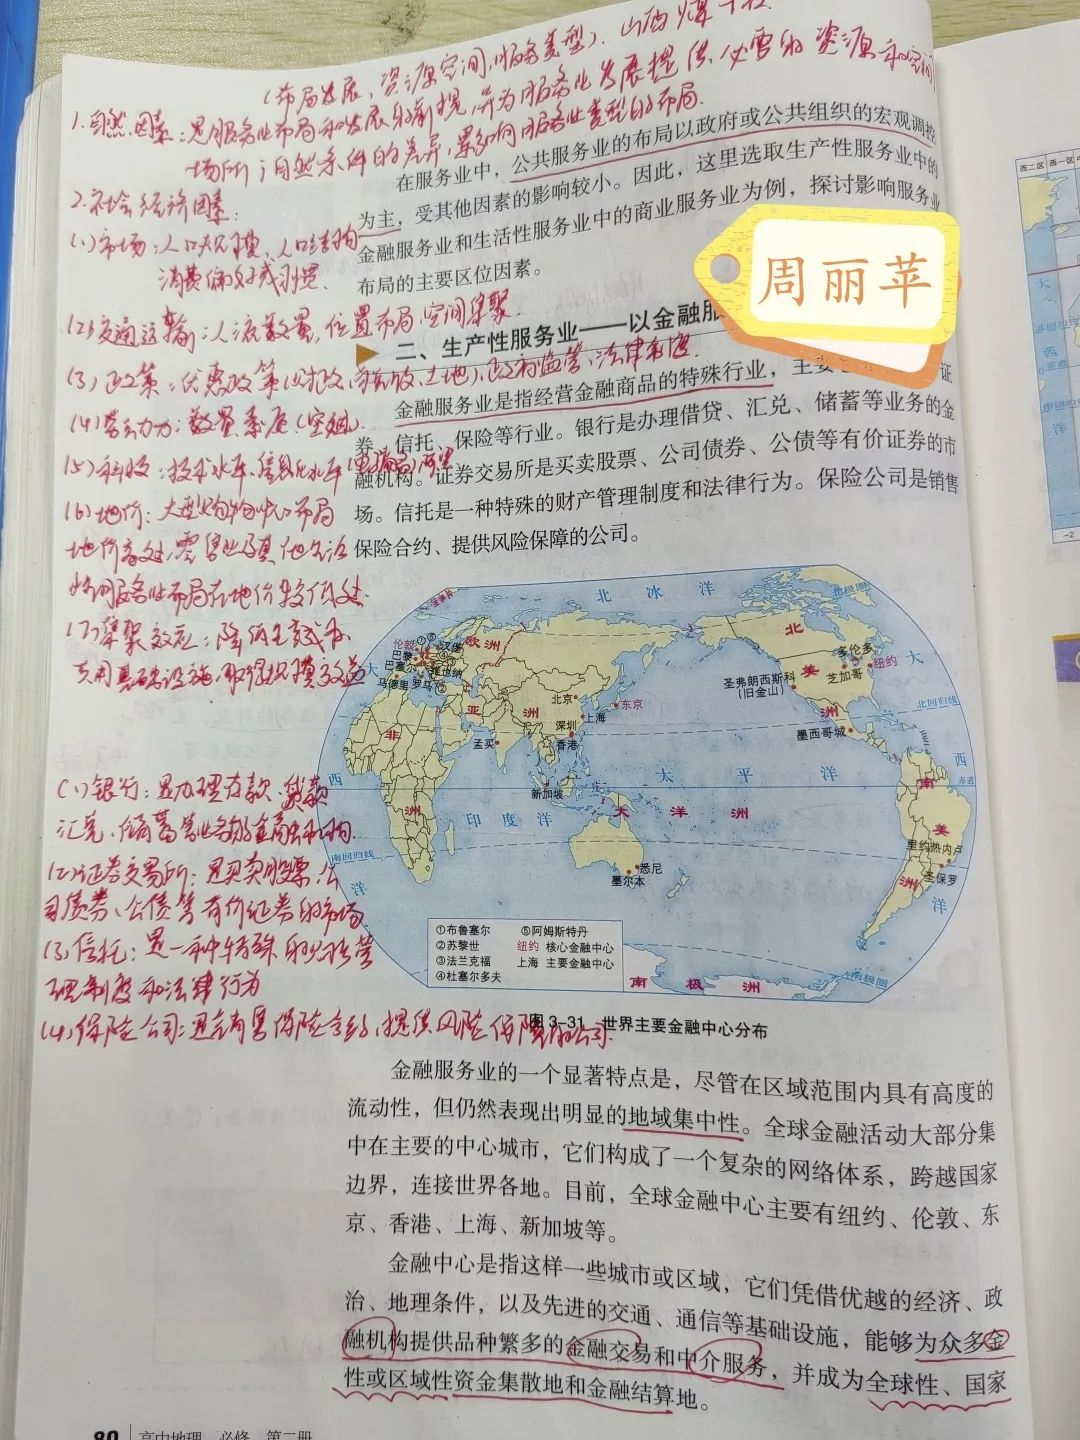 (布局发展、资源空间、服务类型). 山西煤
1.自然因素:是服务业布局和发展的前提,并为服务业发展提供必需的资源和空间
场所;自然条件的差异,影响服务业类型的布局.
在服务业中,公共服务业的布局以政府或公共组织的宏观调控
为主,受其他因素的影响较小。因此,这里选取生产性服务业中的
金融服务业和生活性服务业中的商业服务业为例,探讨影响服务业
布局的主要区位因素。
周丽苹
2.社会经济因素:
(1)市场:人口规模、人口结构
消费偏好或习惯、
(2)交通运输:人流数量,位置布局,空间集聚
二、生产性服务业——以金融服
(3)政策:优惠政策(财政、土地)、政府监管、法律制度.
金融服务业是指经营金融商品的特殊行业,主要 证
券、信托、保险等行业。银行是办理借贷、汇兑、储蓄等业务的金
融机构。证券交易所是买卖股票、公司债券、公债等有价证券的市
场。信托是一种特殊的财产管理制度和法律行为。保险公司是销售
保险合约、提供风险保障的公司。
(4)劳动力:数量、素质(空姐).
(5)科技:技术水平、信息化水平
(6)地价:大型购物中心布局
地价高处,零售业及其他生活
性服务业布局在地价较低处.
(7)集聚效应:降低生产成本,
共用基础设施,取得规模效益
北冰洋
欧洲
亚洲
非洲
北美洲
南美洲
大洋洲
南极洲
太平洋
印度洋
大西洋
大西洋
北极圈
北回归线
赤道
南回归线
南极圈
伦敦
汉堡
巴黎
巴塞尔
维也纳
马德里
罗马
孟买
北京
上海
深圳
香港
东京
新加坡
悉尼
墨尔本
圣弗朗西斯科
(旧金山)
多伦多
纽约
芝加哥
墨西哥城
里约热内卢
圣保罗
①布鲁塞尔
②苏黎世
③法兰克福
④杜塞尔多夫
⑤阿姆斯特丹
纽约 核心金融中心
上海 主要金融中心
(1)银行:是办理存款、贷款
汇兑、储蓄等业务的金融机构.
(2)证券交易所:是买卖股票、公
司债券、公债等有价证券的市场
(3)信托:是一种特殊的财产管
理制度和法律行为
(4)保险公司:是销售保险合约,提供风险保障的公司.
图3-31 世界主要金融中心分布
金融服务业的一个显著特点是,尽管在区域范围内具有高度的
流动性,但仍然表现出明显的地域集中性。全球金融活动大部分集
中在主要的中心城市,它们构成了一个复杂的网络体系,跨越国家
边界,连接世界各地。目前,全球金融中心主要有纽约、伦敦、东
京、香港、上海、新加坡等。
金融中心是指这样一些城市或区域,它们凭借优越的经济、政
治、地理条件,以及先进的交通、通信等基础设施,能够为众多金
融机构提供品种繁多的金融交易和中介服务,并成为全球性、国家
性或区域性资金集散地和金融结算地。
80 高中地理 必修 第二册
西二区
西一区
大
西
洋